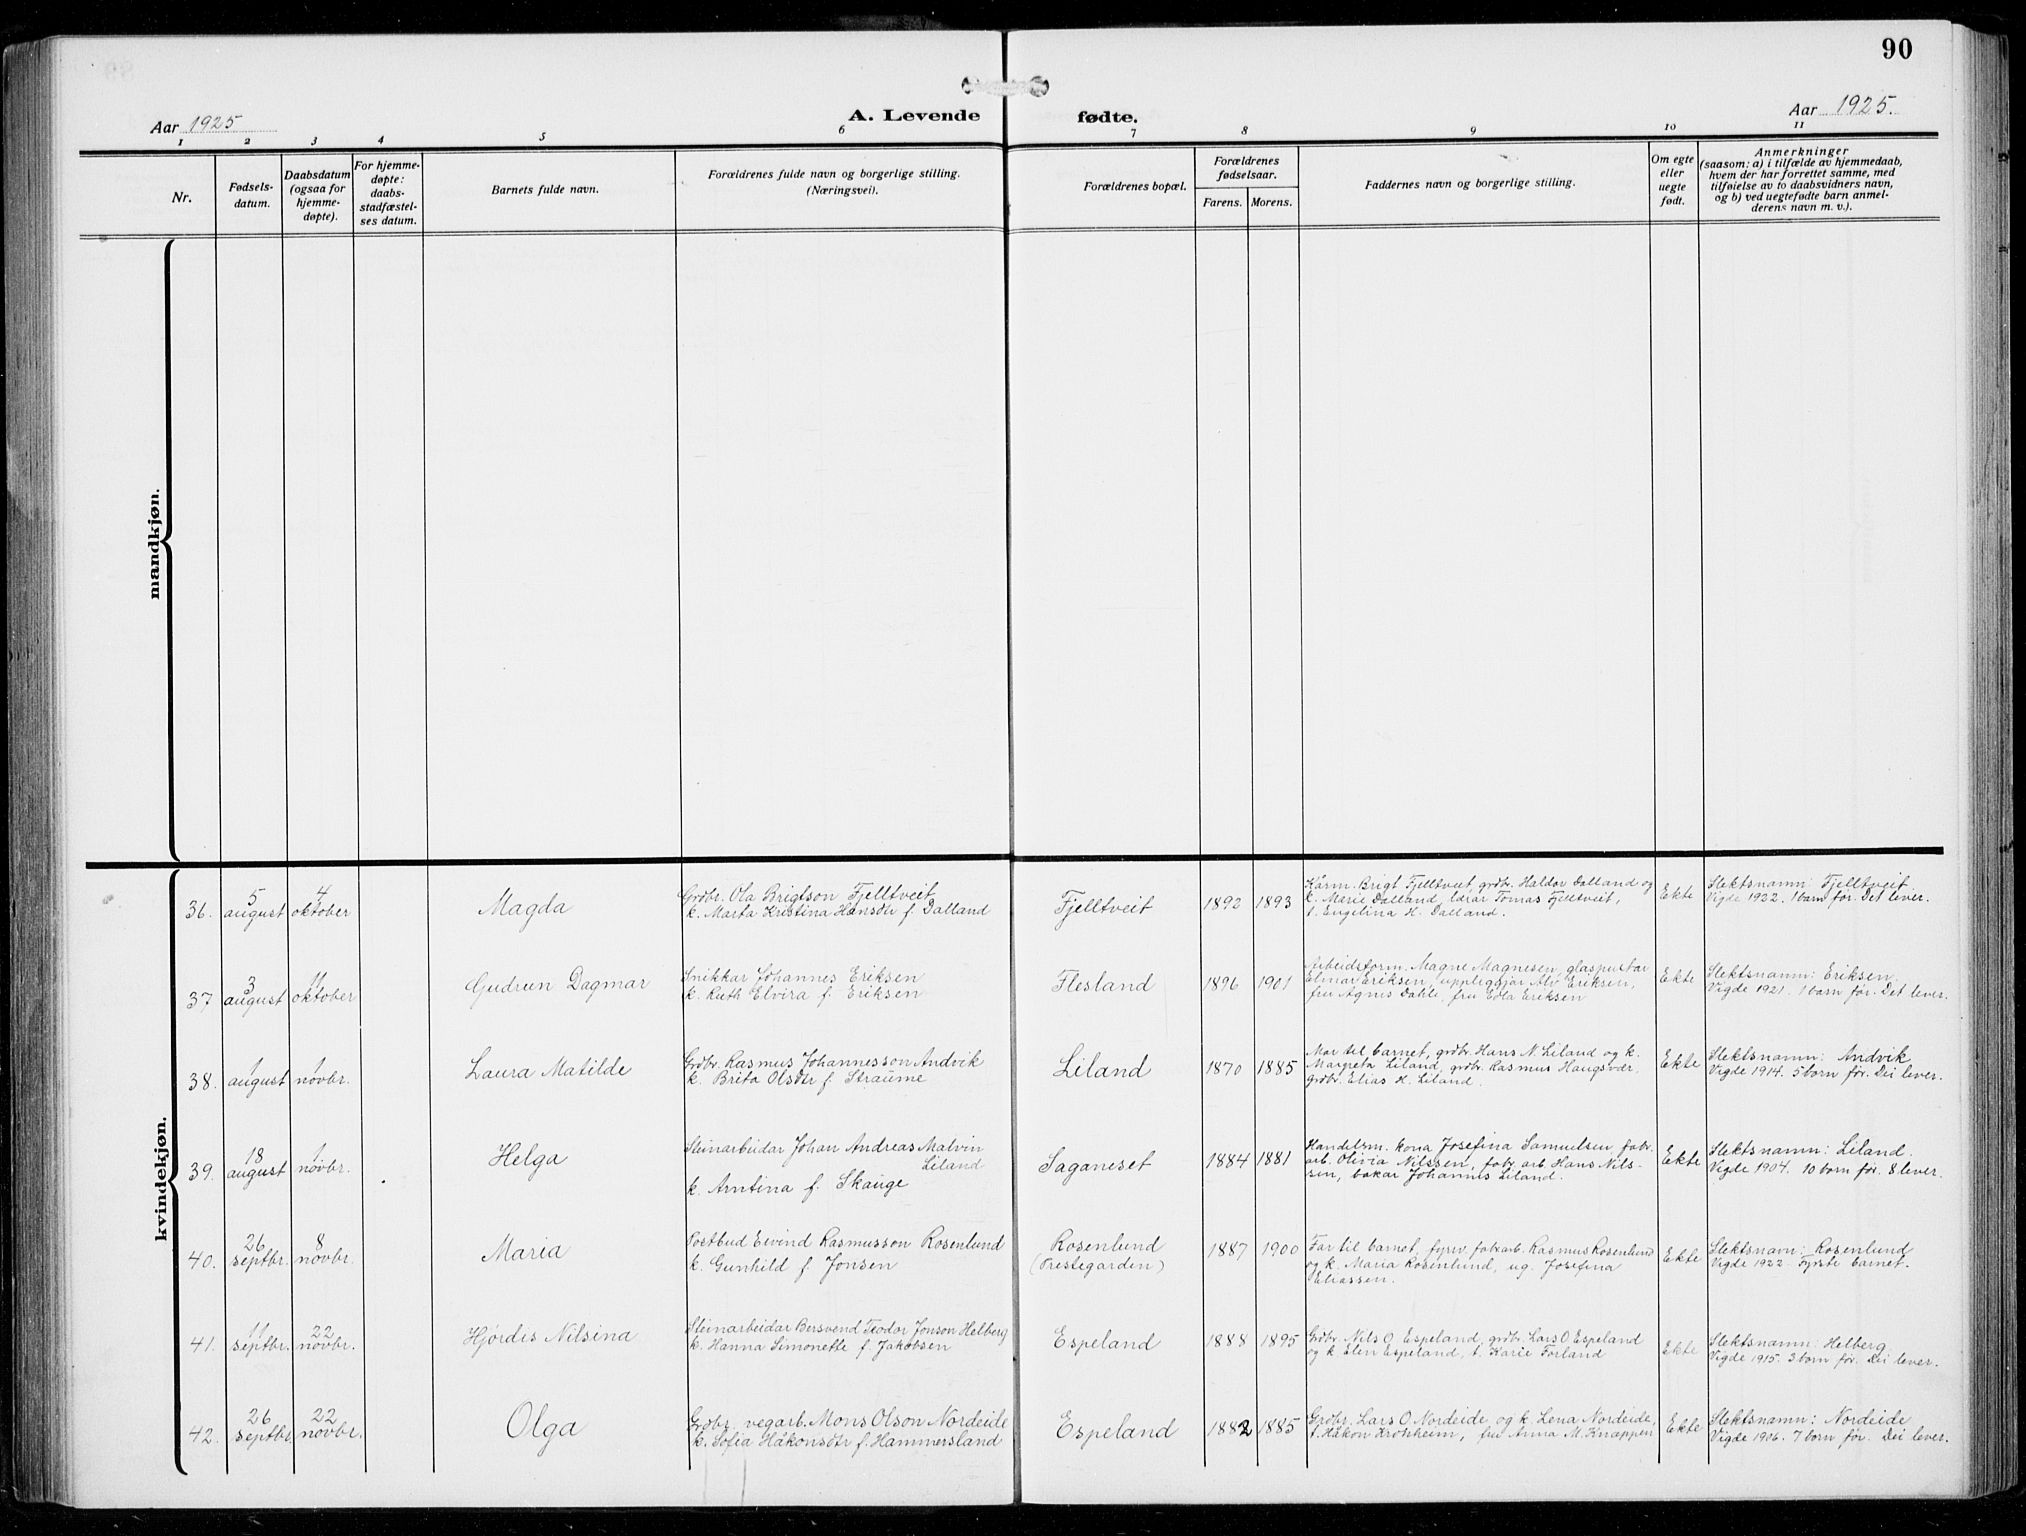 90
Aar 1925
A. Levende fødte.
Aar 1925.
1 2 3 4 5 6 7 8 9 10 11
Nr.
Fødsels-
datum.
Daabsdatum
(ogsaa for
hjemme-
døpte).
For hjemme-
døpte:
daabs-
stadfæstel-
ses datum.
Barnets fulde navn.
Forældrenes fulde navn og borgerlige stilling.
(Næringsvei).
Forældrenes bopæl.
Forældrenes
fødselsaar.
Farens. Morens.
Faddernes navn og borgerlige stilling.
Om egte
eller
uegte
født.
Anmerkninger
(saasom: a) i tilfælde av hjemmedaab,
hvem der har forrettet samme, med
tilføielse av to daabsvidners navn,
og b) ved uegtefødte barn anmel-
derens navn m. v.).
mandkjøn.
kvindekjøn.
36.
5
august
4
oktober
Magda
Grdbr. Ola Brigtson Fjelltveit
k. Marta Kristina Hansdtr f. Dalland
Fjelltveit
1892 1893
Kårm. Brigt Fjelltveit, grdbr. Haldor Dalland og
k. Marie Dalland, lærar Tomas Fjelltveit,
t. Engelina H. Dalland.
Ekte
Slektsnamn: Fjelltveit.
Vigde 1922. 1 barn før. Det lever.
37
3
august
11
oktober
Gudrun Dagmar
Snikkar Johannes Eriksen
k. Ruth Elvira f. Eriksen
Flesland
1896 1901
Arbeidsform. Magne Magnesen, glaspustar
Einar Eriksen, uppleggjar Alv Eriksen,
fru Agnes Dahle, fru Edla Eriksen
Ekte
Slektsnamn: Eriksen.
Vigde 1921. 1 barn før. Det lever.
38.
1
august
1
novbr.
Laura Matilde
Grdbr. Rasmus Johannesson Andvik
k. Brita Olsdtr f. Straume
Liland
1870 1885
Mor til barnet, grdbr. Hans N. Liland og k.
Margreta Liland, grdbr. Rasmus Haugsvær,
grdbr. Elias H. Liland.
Ekte
Slektsnamn: Andvik
Vigde 1914. 5 born før. Dei lever.
39.
18
august
1
novbr.
Helga
Steinarbeidar Johan Andreas Malvin
Liland
k. Arntina f. Skauge
Saganeset
1884 1881
Handelsm. kona Josefina Samuelsen, fabr.
arb. Olivia Nilssen, fabr. arb. Hans Nils-
sen, bakar Johannes Liland.
Ekte
Slektsnamn: Liland.
Vigde 1904. 10 born før. 8 lever.
40.
26
septbr.
8
novbr.
Maria
Postbud Eivind Rasmusson Rosenlund
k. Gunhild f. Jonsen
Rosenlund
(Prestegarden)
1887 1900
Far til barnet, fyrv. fabrarb. Rasmus Rosenlund
og k. Maria Rosenlund, ug. Josefina
Eliassen.
Ekte
Slektsnavn: Rosenlund
Vigde 1922. Fyrste barnet.
41.
11
septbr.
22
novbr.
Hjørdis Nilsina
Steinarbeidar Bersvend Teodor Jonson Helberg
k. Hanna Simonette f. Jakobsen
Espeland
1888 1895
Grdbr. Nils O. Espeland, grdbr. Lars O Espeland
og k Elen Espeland, t. Karie Forland
Ekte
Slektsnamn: Helberg
Vigde 1915. 3 born før. Dei lever.
42.
26
septbr.
22
novbr.
Olga
Grdbr. vegarb. Mons Olson Nordeide
k. Sofia Håkonsdtr f. Hammersland
Espeland
1882 1885
Grdbr. Lars O Nordeide og k. Lena Nordeide,
t. Håkon Krohheim, fru Anna M. Knappen
Ekte
Slektsnamn: Nordeide
Vigde 1906. 7 born før. Dei lever.